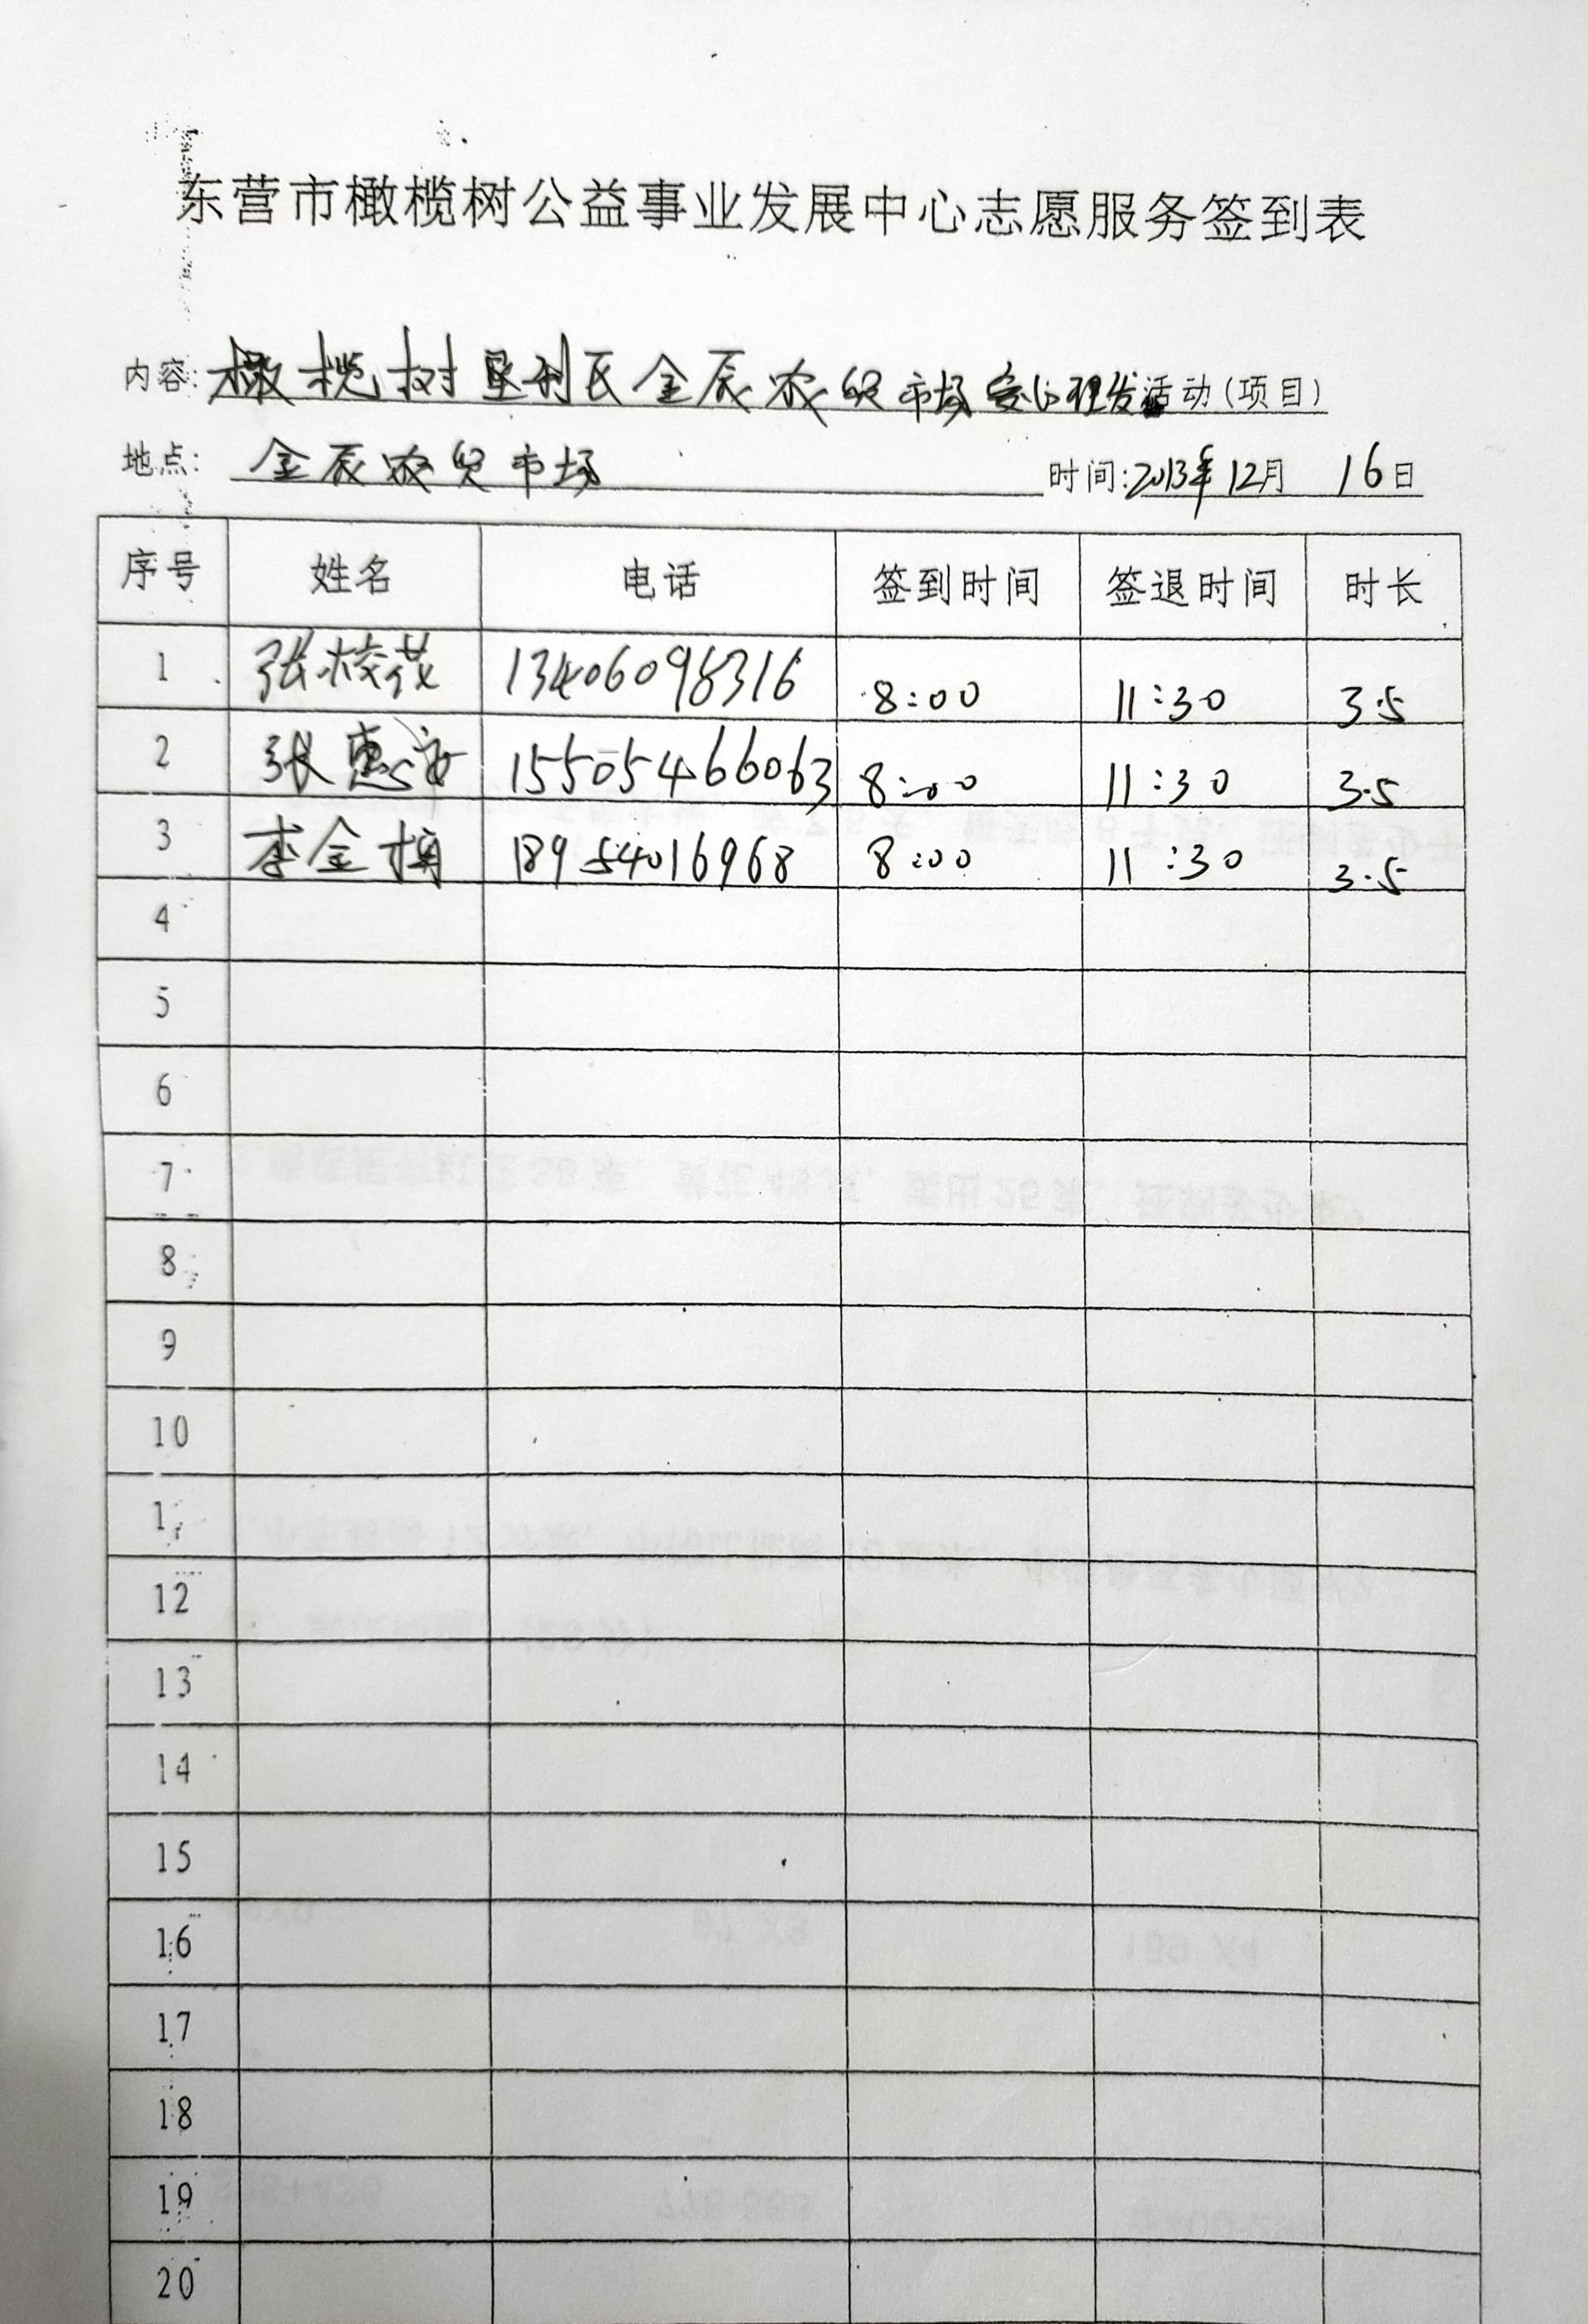 东营市橄榄树公益事业发展中心志愿服务签到表
内容: 橄榄树垦利区金辰农贸市场爱心理发活动(项目)
地点: 金辰农贸市场 时间:2013年12月16日
序号 姓名 电话 签到时间 签退时间 时长
1 张枝花 13406098316 8:00 11:30 3.5
2 张惠 15505466063 8:00 11:30 3.5
3 李金梅 18954016968 8:00 11:30 3.5
4
5
6
7
8
9
10
1
12
13
14
15
16
17
18
19
20